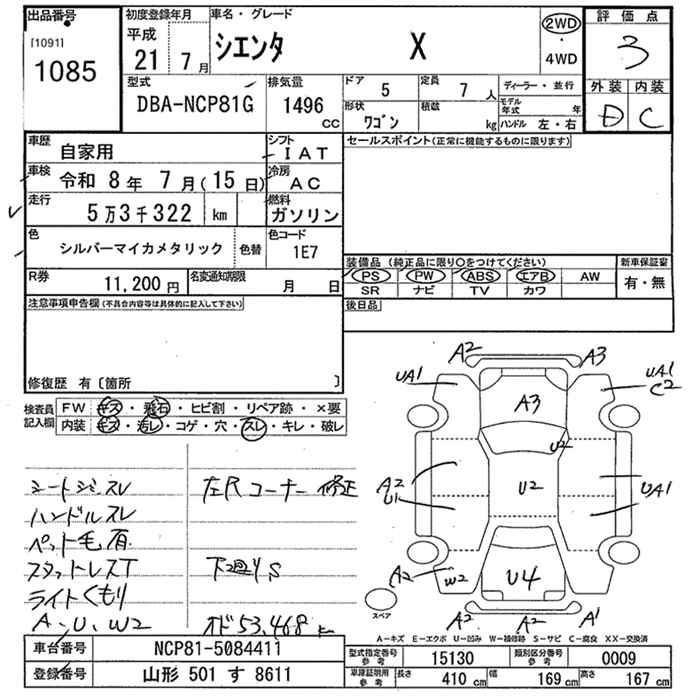 出品番号
[1091]
1085
初度登録年月
平成
21 7月
車名・グレード
シエンタ X
2WD
・
4WD
評価点
3
外装 内装
D C
型式
DBA-NCP81G
排気量
1496
CC
ドア
5
定員
7 人
形状
ワゴン
積載
kg
ディーラー・並行
モデル年式 年
ハンドル 左・右
車歴
自家用
シフト
IAT
車検
令和 8年 7月(15日)
冷房
AC
走行
5万3千322 km
燃料
ガソリン
色
シルバーマイカメタリック
色替
色コード
1E7
R券
11,200円
名変通知期限
月 日
セールスポイント(正常に機能するものに限ります)
装備品(純正品に限り○をつけてください)
PS PW ABS エアB AW
SR ナビ TV カワ
新車保証書
有・無
後日品
注意事項申告欄(不具合内容等は具体的に記入して下さい)
修復歴 有〔箇所 〕
検査員記入欄
FW キズ・飛石・ヒビ割・リペア跡・×要
内装 キズ・汚レ・コゲ・穴・スレ・キレ・破レ
シートシミスレ
ハンドルスレ
ペット毛有
スタットレスT
ライトくもり
A-U、W2
左Rコーナー修正
下廻りS
オド53,468km
A2 A3
UA1
UA1
C2
A3
U2
A2
U1
U2
UA1
A2
W2
U4
A2 A2 A1
スペア
A-キズ E-エクボ U-凹み W-補修跡 S-サビ C-腐食 XX-交換済
車台番号
NCP81-5084411
登録番号
山形 501 す 8611
型式指定番号
参考
15130
類別区分番号
参考
0009
車庫証明用
参考
長さ 410 cm
幅 169 cm
高さ 167 cm